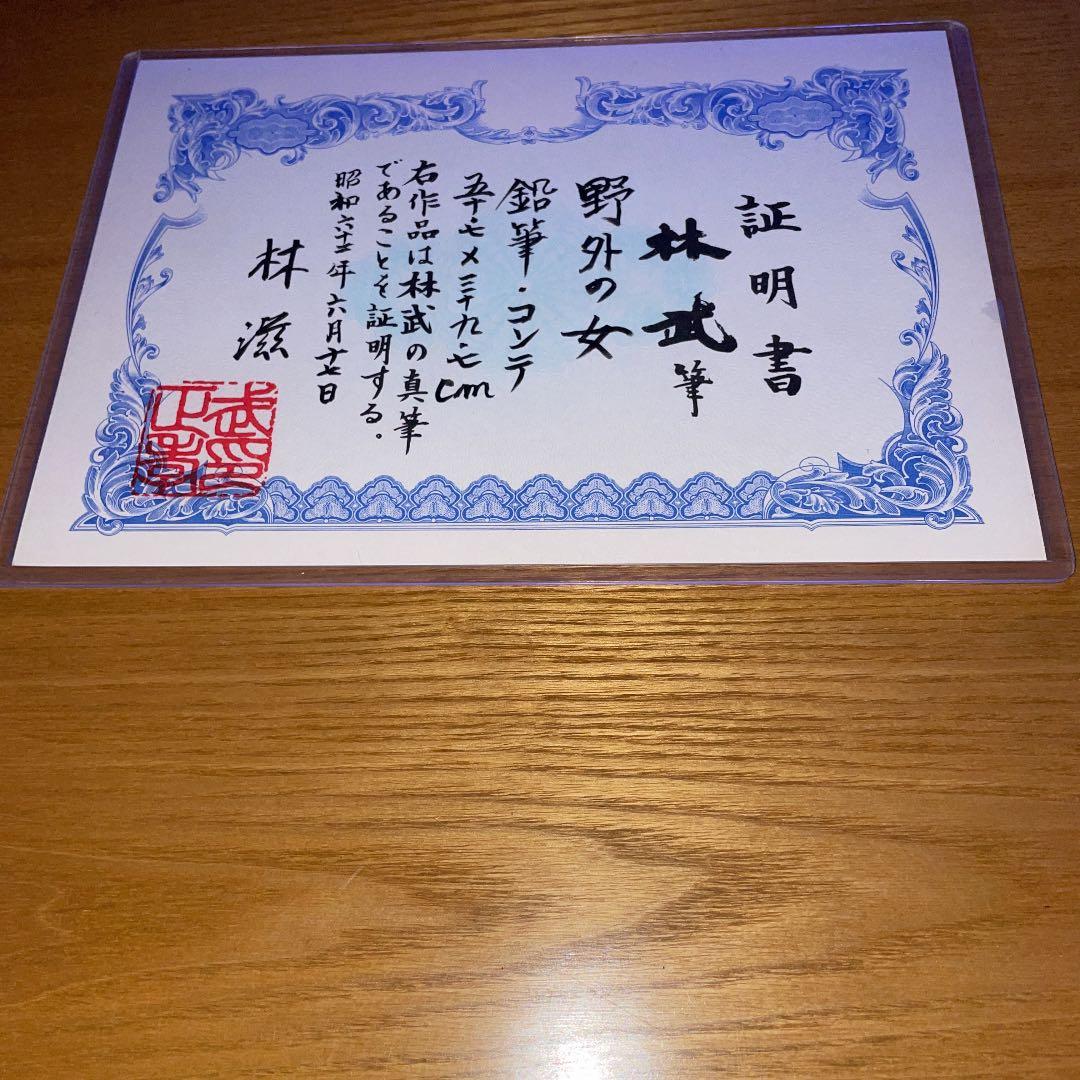 証明書
林武筆
野外の女
鉛筆・コンテ
五十七×三十九・七cm
右作品は林武の真筆
であることを証明する.
昭和六十二年六月十七日
林滋